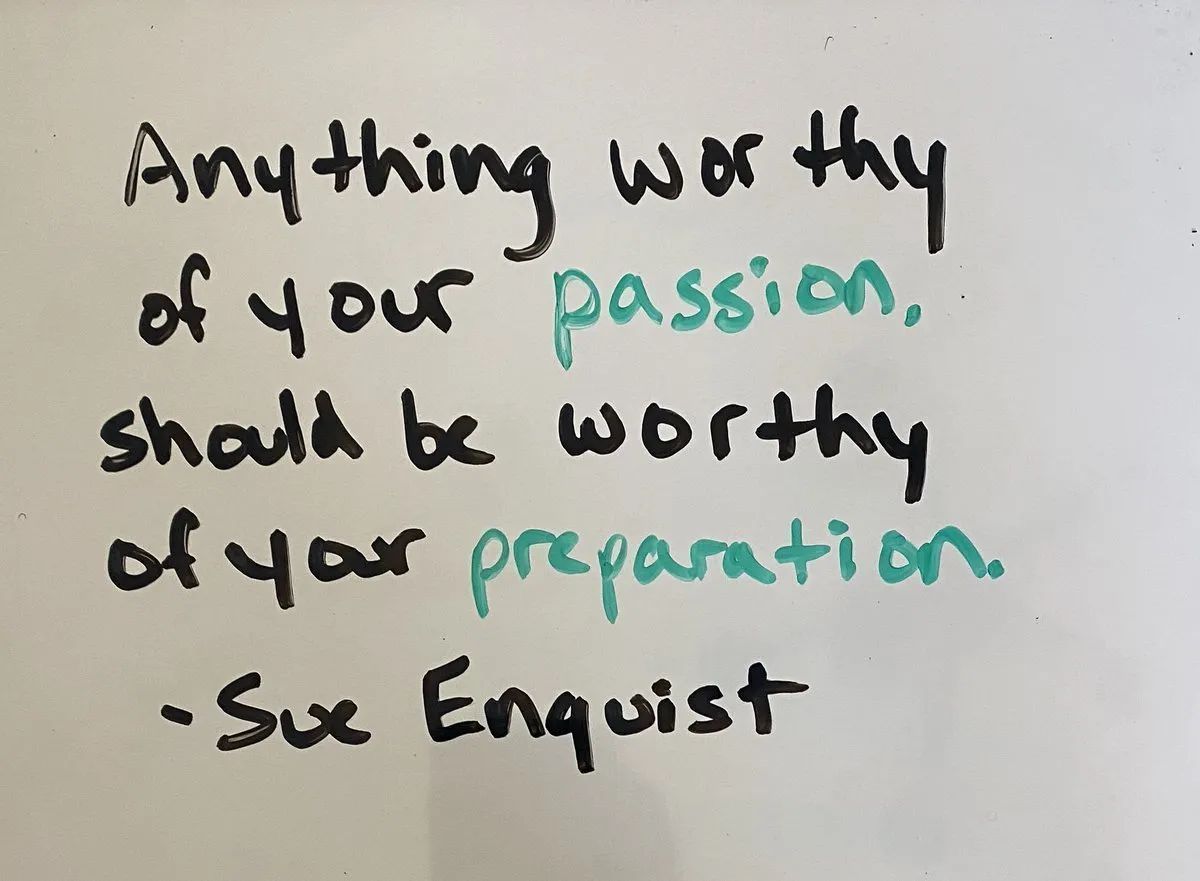 Anything worthy
of your passion,
should be worthy
of your preparation.
- Sue Enquist